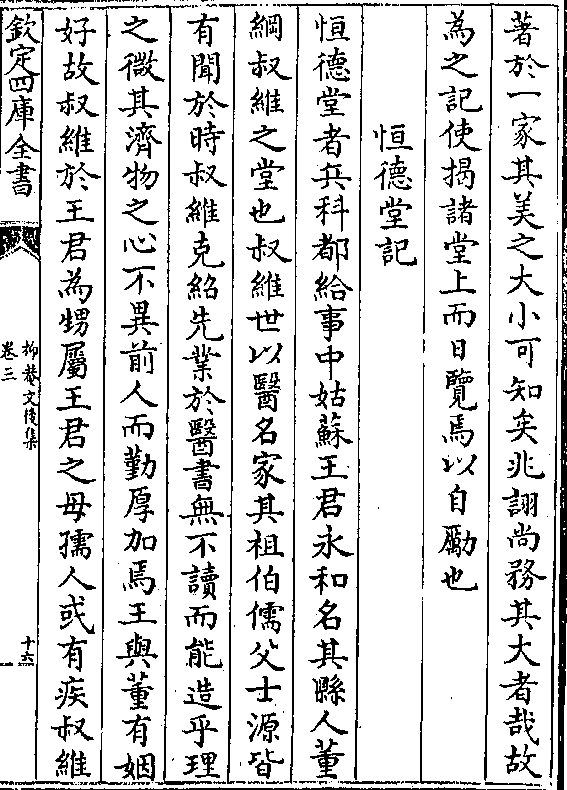 著於一家其美之大小可知矣兆詡尚務其大者哉故
為之記使揭諸堂上而日覽焉以自勵也
恒德堂記
恒德堂者兵科都給事中姑蘇王君永和名其縣人董
綱叔維之堂也叔維世以醫名家其祖伯儒父士源皆
有聞於時叔維克紹先業於醫書無不讀而能造乎理
之微其濟物之心不異前人而勤厚加焉王與董有姻
好故叔維於王君為甥屬王君之母孺人或有疾叔維
欽定四庫全書
抑菴文後集
卷三
十六